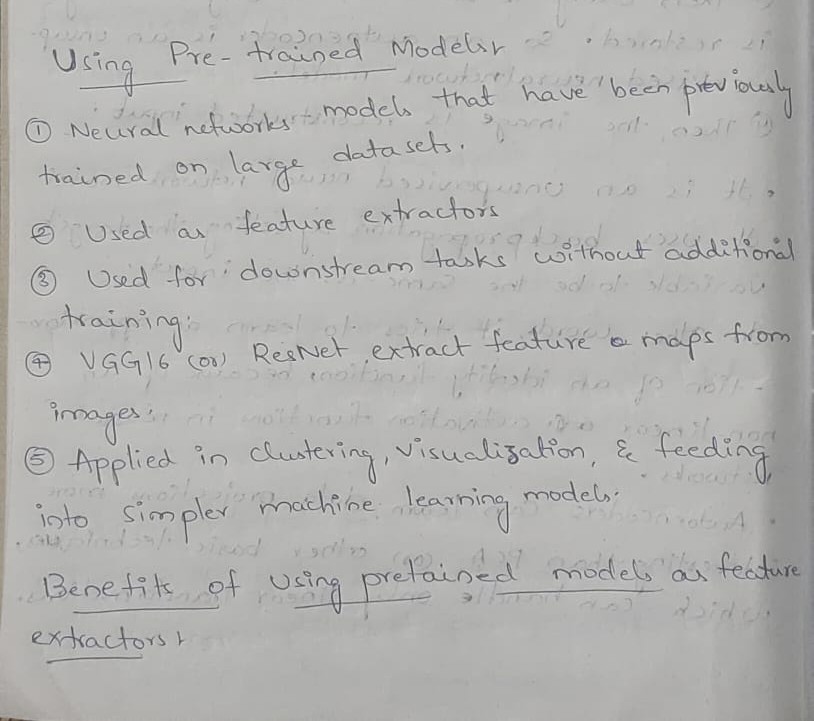 Using Pre-trained Models:
① Neural networks models that have been previously
trained on large datasets.
② Used as feature extractors
③ Used for downstream tasks without additional
training.
④ VGG16 (or) ResNet extract feature maps from
images.
⑤ Applied in clustering, visualization, & feeding
into simpler machine learning models.
Benefits of using pretained models as feature
extractors: